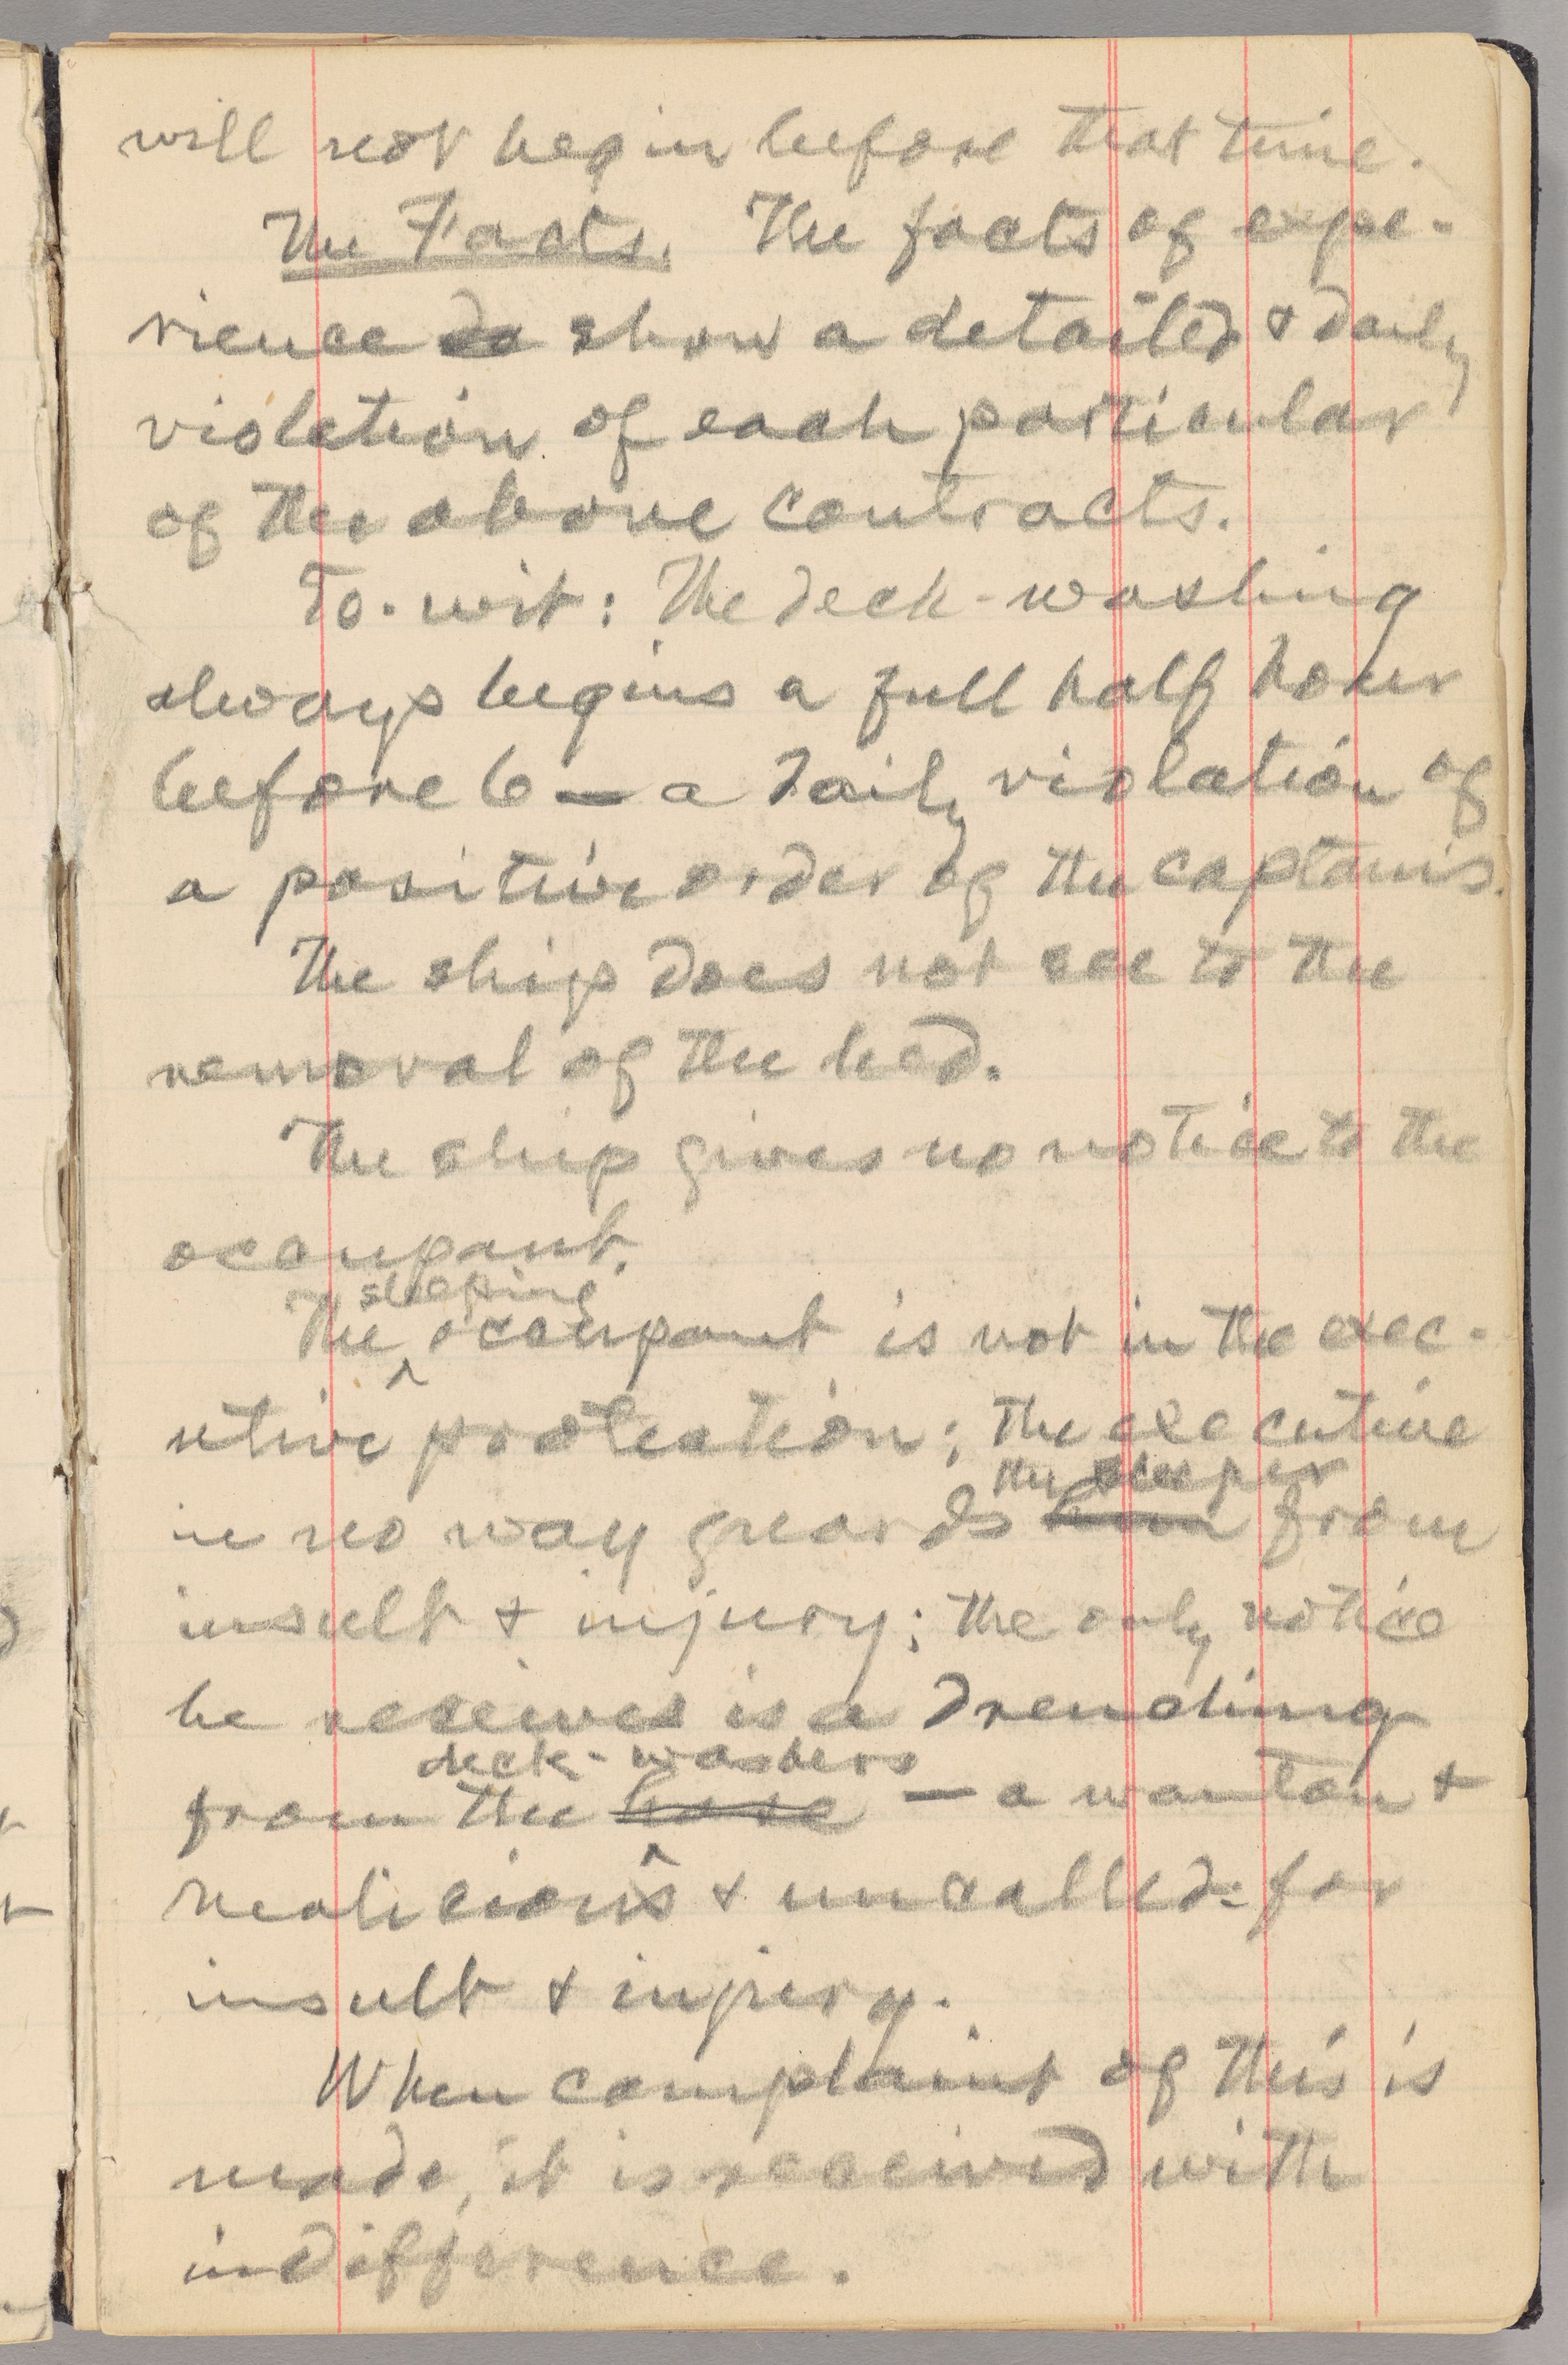 will not begin before that time.
The Facts. The facts of expe-
rience do show a detailed & daily
violation of each particular
of the above contracts.
To-wit: The deck-washing
always begins a full half hour
before 6 — a daily violation of
a positive order of the captain's.
The ship does not see to the
removal of the bed.
The ship gives no notice to the
occupant.
sleeping
The ^ occupant is not in the exec-
utive protection; the executive
the sleeper
in no way guards him from
insult & injury; the only notice
he receives is a drenching
deck-washers
from the hose — a wanton &
^
malicious & uncalled-for
insult & injury.
When complaint of this is
made, it is received with
indifference.